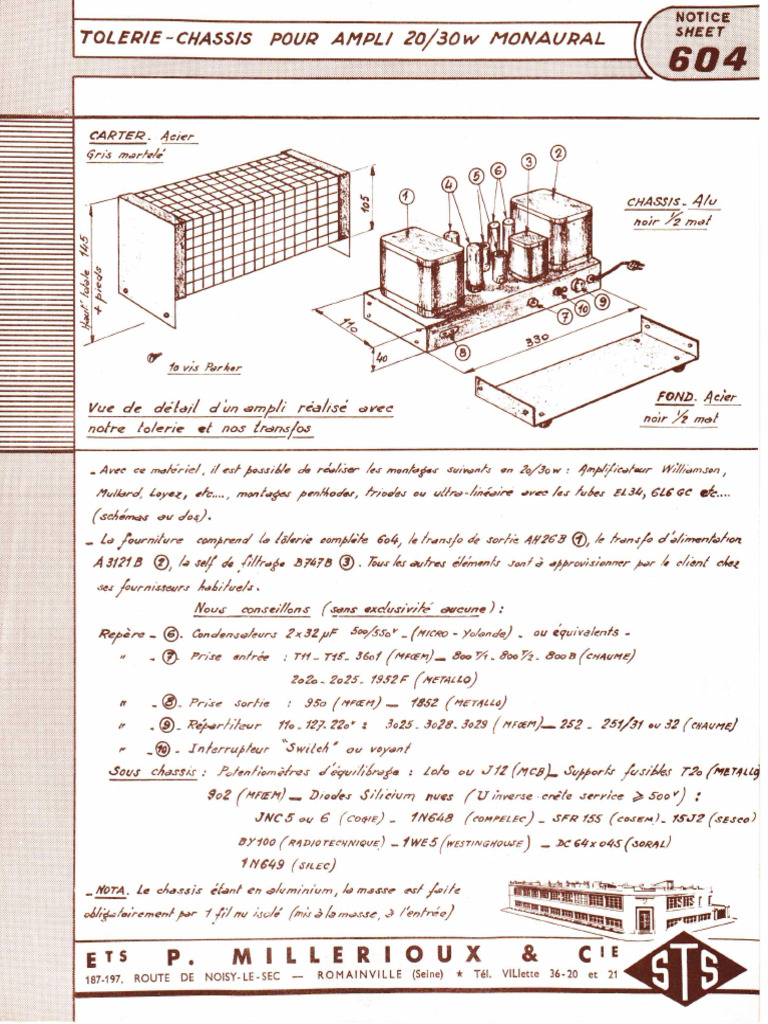 TOLERIE-CHASSIS POUR AMPLI 20/30W MONAURAL
NOTICE
SHEET
604
CARTER. Acier
Gris martelé
105
Haut' totale 145
+ pieds
10 vis Parker
1
4
5
6
3
2
CHASSIS. Alu
noir 1/2 mat
110
40
8
7
10
9
330
FOND. Acier
noir 1/2 mat
Vue de détail d'un ampli réalisé avec
notre tolerie et nos transfos
- Avec ce matériel, il est possible de réaliser les montages suivants en 20/30w : Amplificateur Williamson,
Mullard, Loyez, etc...., montages penthodes, triodes ou ultra-linéaire avec les tubes EL34, 6L6 GC etc....
(schémas au dos).
- La fourniture comprend la tôlerie complète 604, le transfo de sortie AH26B ①, le transfo d'alimentation
A3121B ②, la self de filtrage B747B ③. Tous les autres éléments sont à approvisionner par le client chez
ses fournisseurs habituels.
Nous conseillons (sans exclusivité aucune) :
Repère - ⑥. Condensateurs 2x32µF 500/550v - (MICRO - Yolande) - ou équivalents -
" - ⑦. Prise entrée : T11 - T15 - 3601 (MFŒM) - 800 T/1 - 800 T/2 - 800B (CHAUME)
2020 - 2025 - 1952F (METALLO)
" - ⑧. Prise sortie : 950 (MFŒM) - 1852 (METALLO)
" - ⑨. Répartiteur 110-127-220v : 3025 - 3028 - 3029 (MFŒM) - 252 - 251/31 ou 32 (CHAUME)
" - ⑩. Interrupteur "Switch" ou voyant
Sous chassis : Potentiomètres d'équilibrage : Loto ou J12 (MCB) - Supports fusibles T20 (METALLO)
902 (MFŒM) - Diodes Silicium nues (U inverse-crête service ⩾ 500v) :
JNC5 ou 6 (COGIE) - 1N648 (COMPELEC) - SFR 155 (COSEM) - 15J2 (SESCO)
BY100 (RADIOTECHNIQUE) - 1WE5 (WESTINGHOUSE) - DC64x045 (SORAL)
1N649 (SILEC)
- NOTA. Le chassis étant en aluminium, la masse est faite
obligatoirement par 1 fil nu isolé (mis à la masse, à l'entrée)
ETS P. MILLERIOUX & CIE
187-197, ROUTE DE NOISY-LE-SEC — ROMAINVILLE (Seine) ★ Tél. VILlette 36-20 et 21
STS